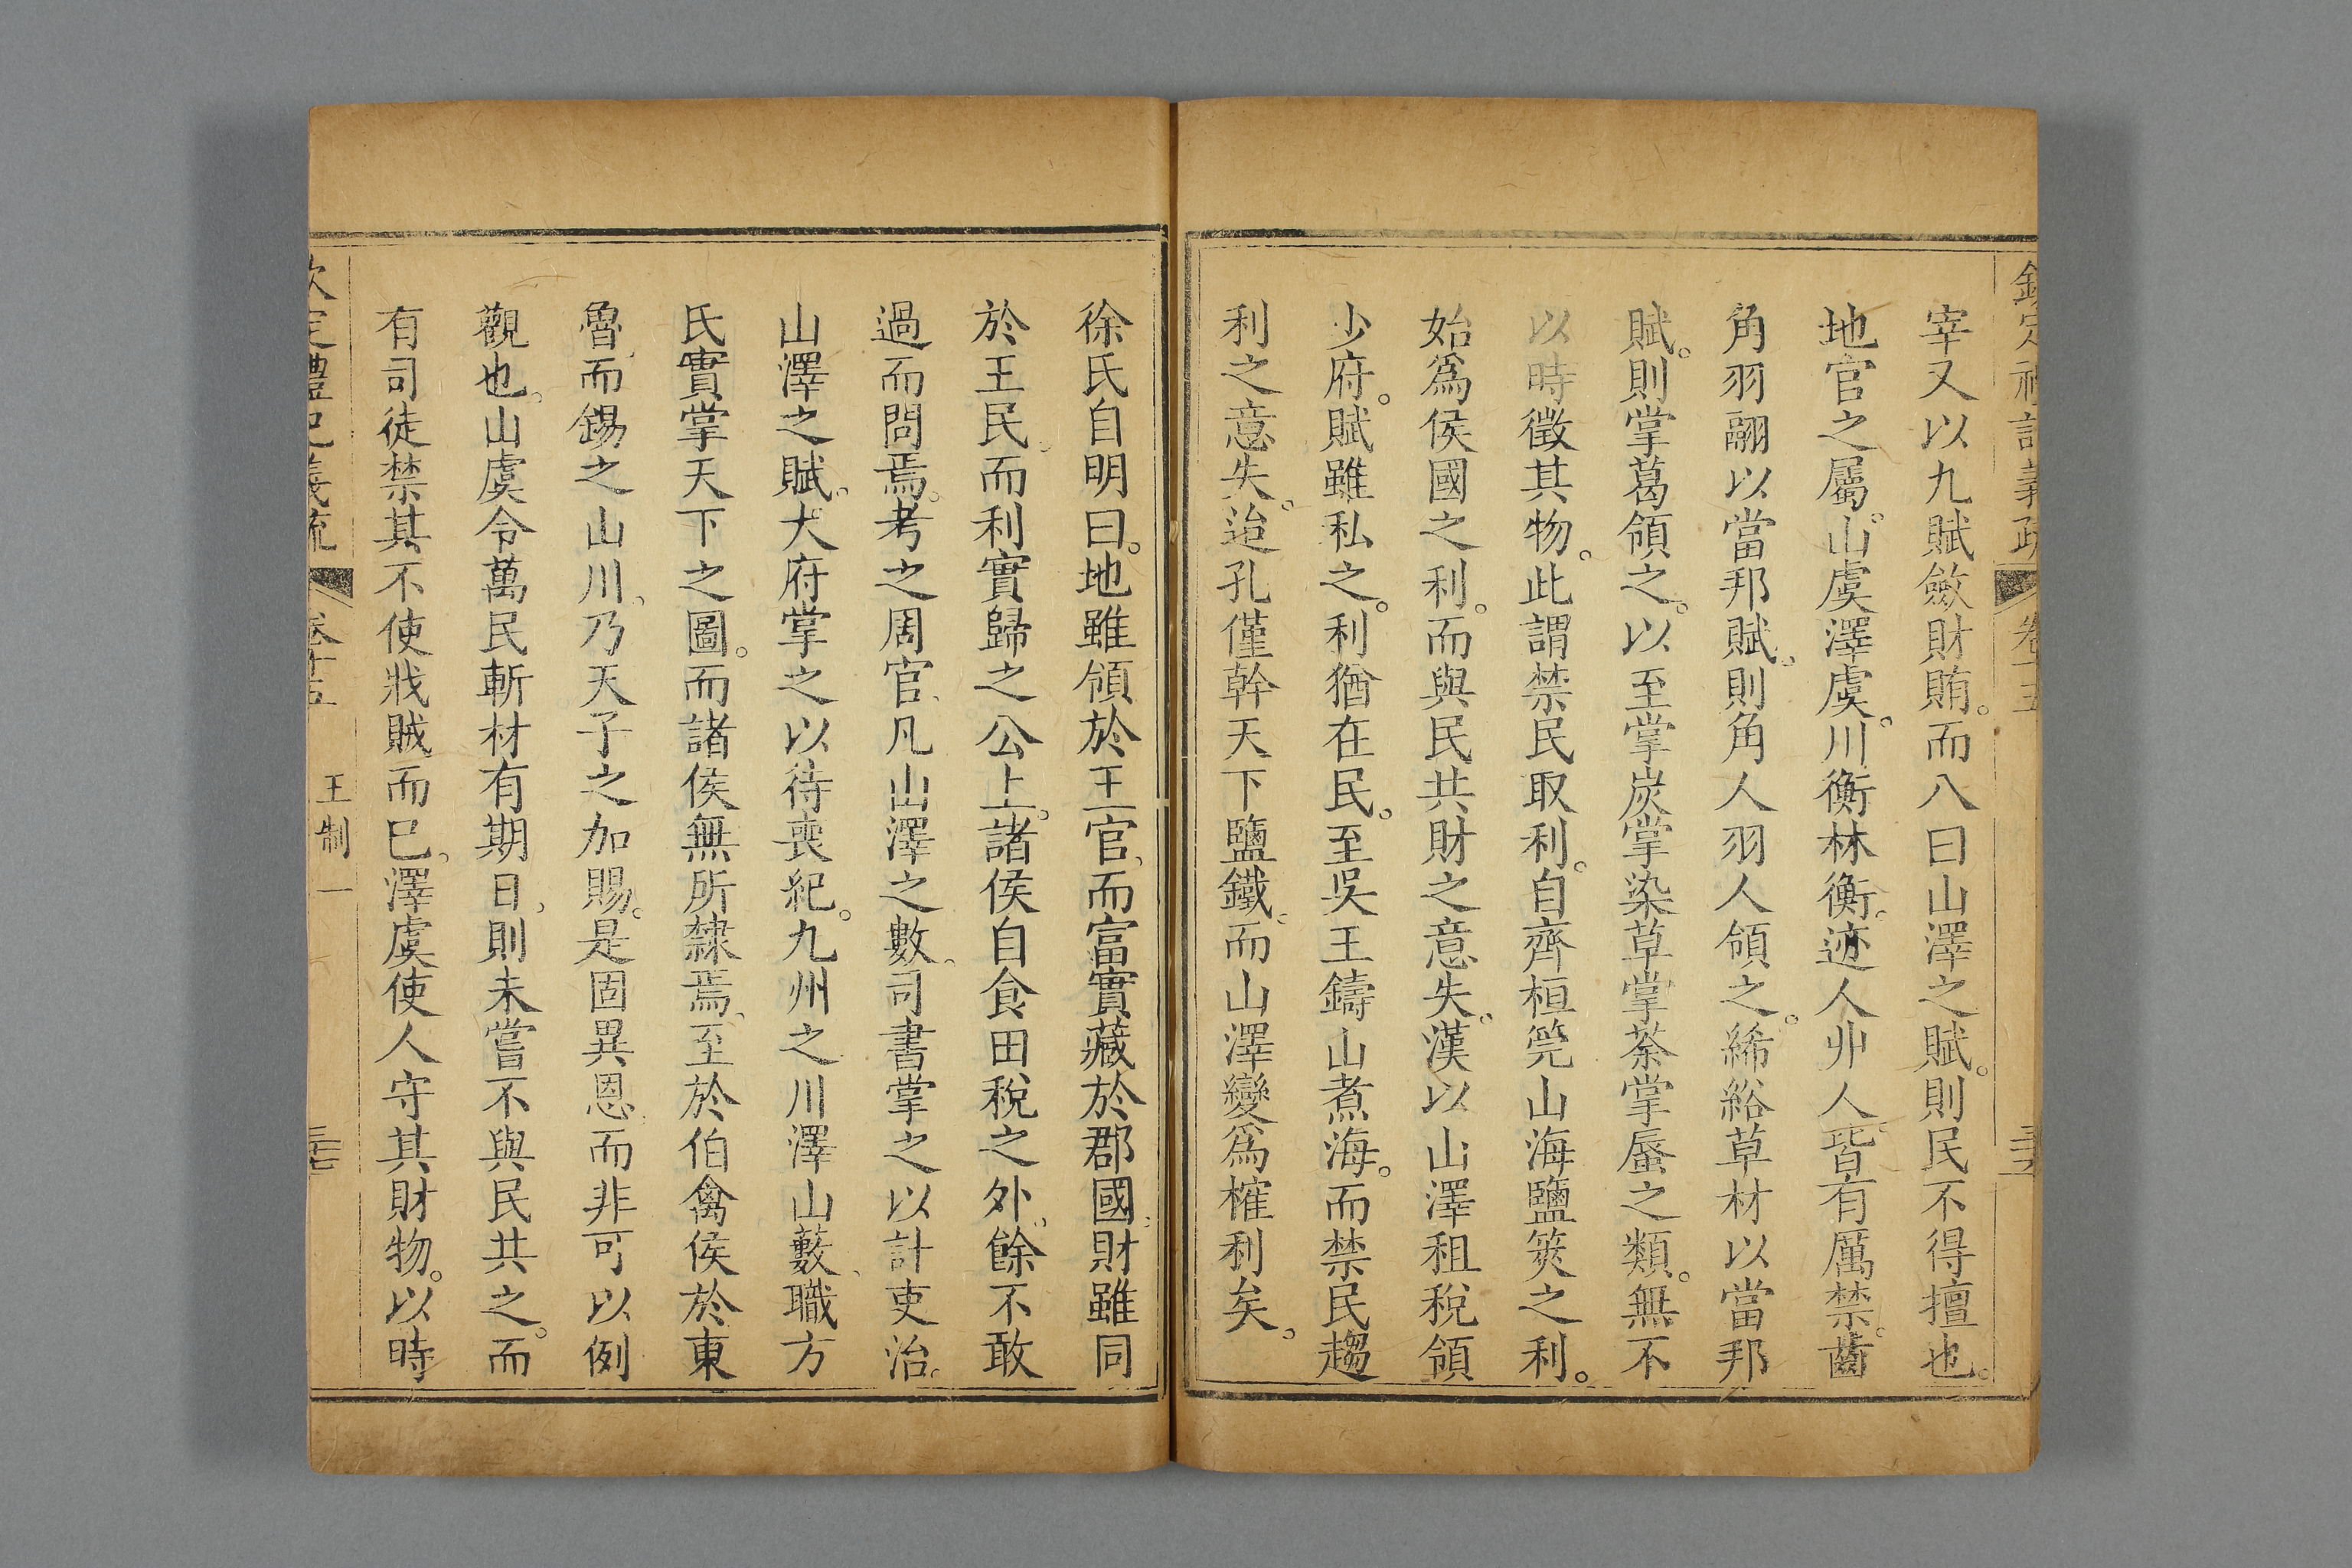 宰又以九賦斂財賄。而八曰山澤之賦。則民不得擅也。
地官之屬。山虞澤虞。川衡林衡。迹人丱人。皆有厲禁。齒
角羽翮以當邦賦。則角人羽人領之。絺綌草材以當邦
賦。則掌葛領之。以至掌炭掌染草掌荼掌蜃之類。無不
以時徵其物。此謂禁民取利。自齊桓筦山海鹽筴之利。
始爲侯國之利。而與民共財之意失。漢以山澤租稅領
少府。賦雖私之。利猶在民。至吳王鑄山煮海。而禁民趨
利之意失。迨孔僅幹天下鹽鐵。而山澤變爲榷利矣。
徐氏自明曰。地雖領於王官、而富實藏於郡國、財雖同
於王民、而利實歸之公上。諸侯自食田稅之外、餘不敢
過而問焉。考之周官、凡山澤之數、司書掌之以計吏治。
山澤之賦。大府掌之以待喪紀。九州之川澤山藪、職方
氏實掌天下之圖。而諸侯無所隸焉、至於伯禽侯於東
魯、而錫之山川、乃天子之加賜。是固異恩、而非可以例
觀也。山虞令萬民斬材有期日、則未嘗不與民共之。而
有司徒禁其不使戕賊而已。澤虞使人守其財物。以時
欽定禮記義疏 卷十五 王制一